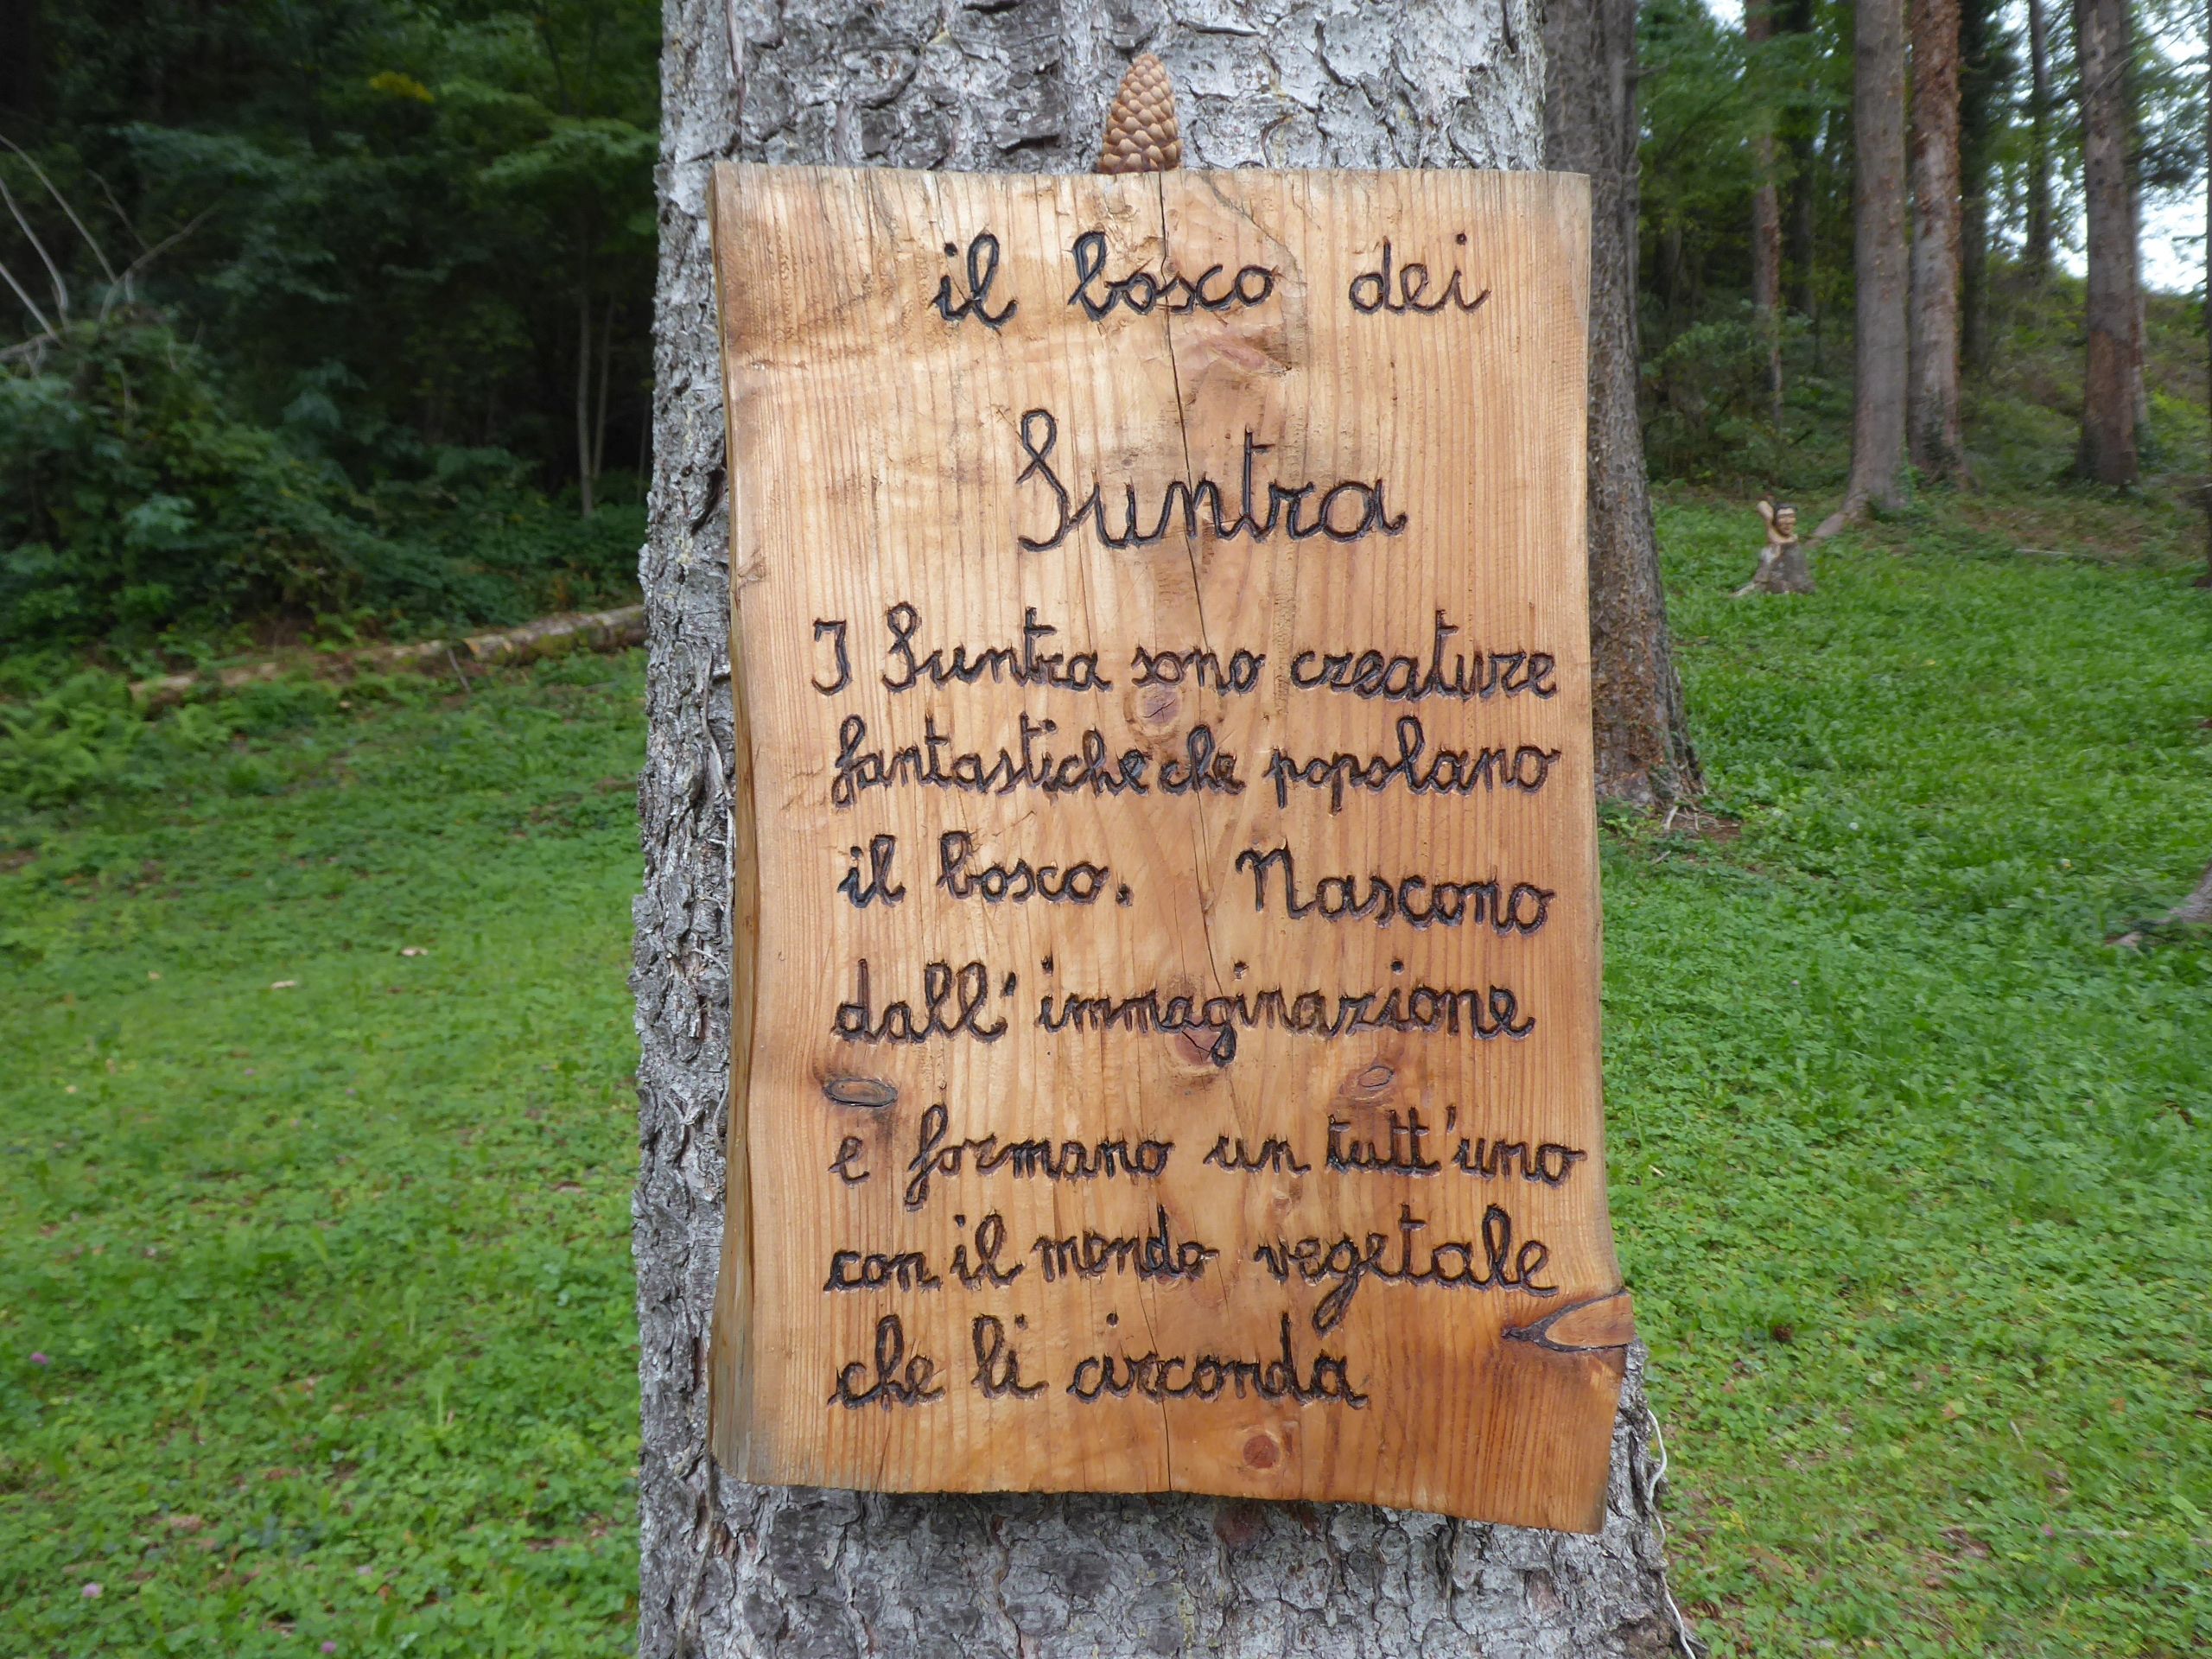 il bosco dei
Suntra
I Suntra sono creature
fantastiche che popolano
il bosco. Nascono
dall'immaginazione
e formano un tutt'uno
con il mondo vegetale
che li circonda